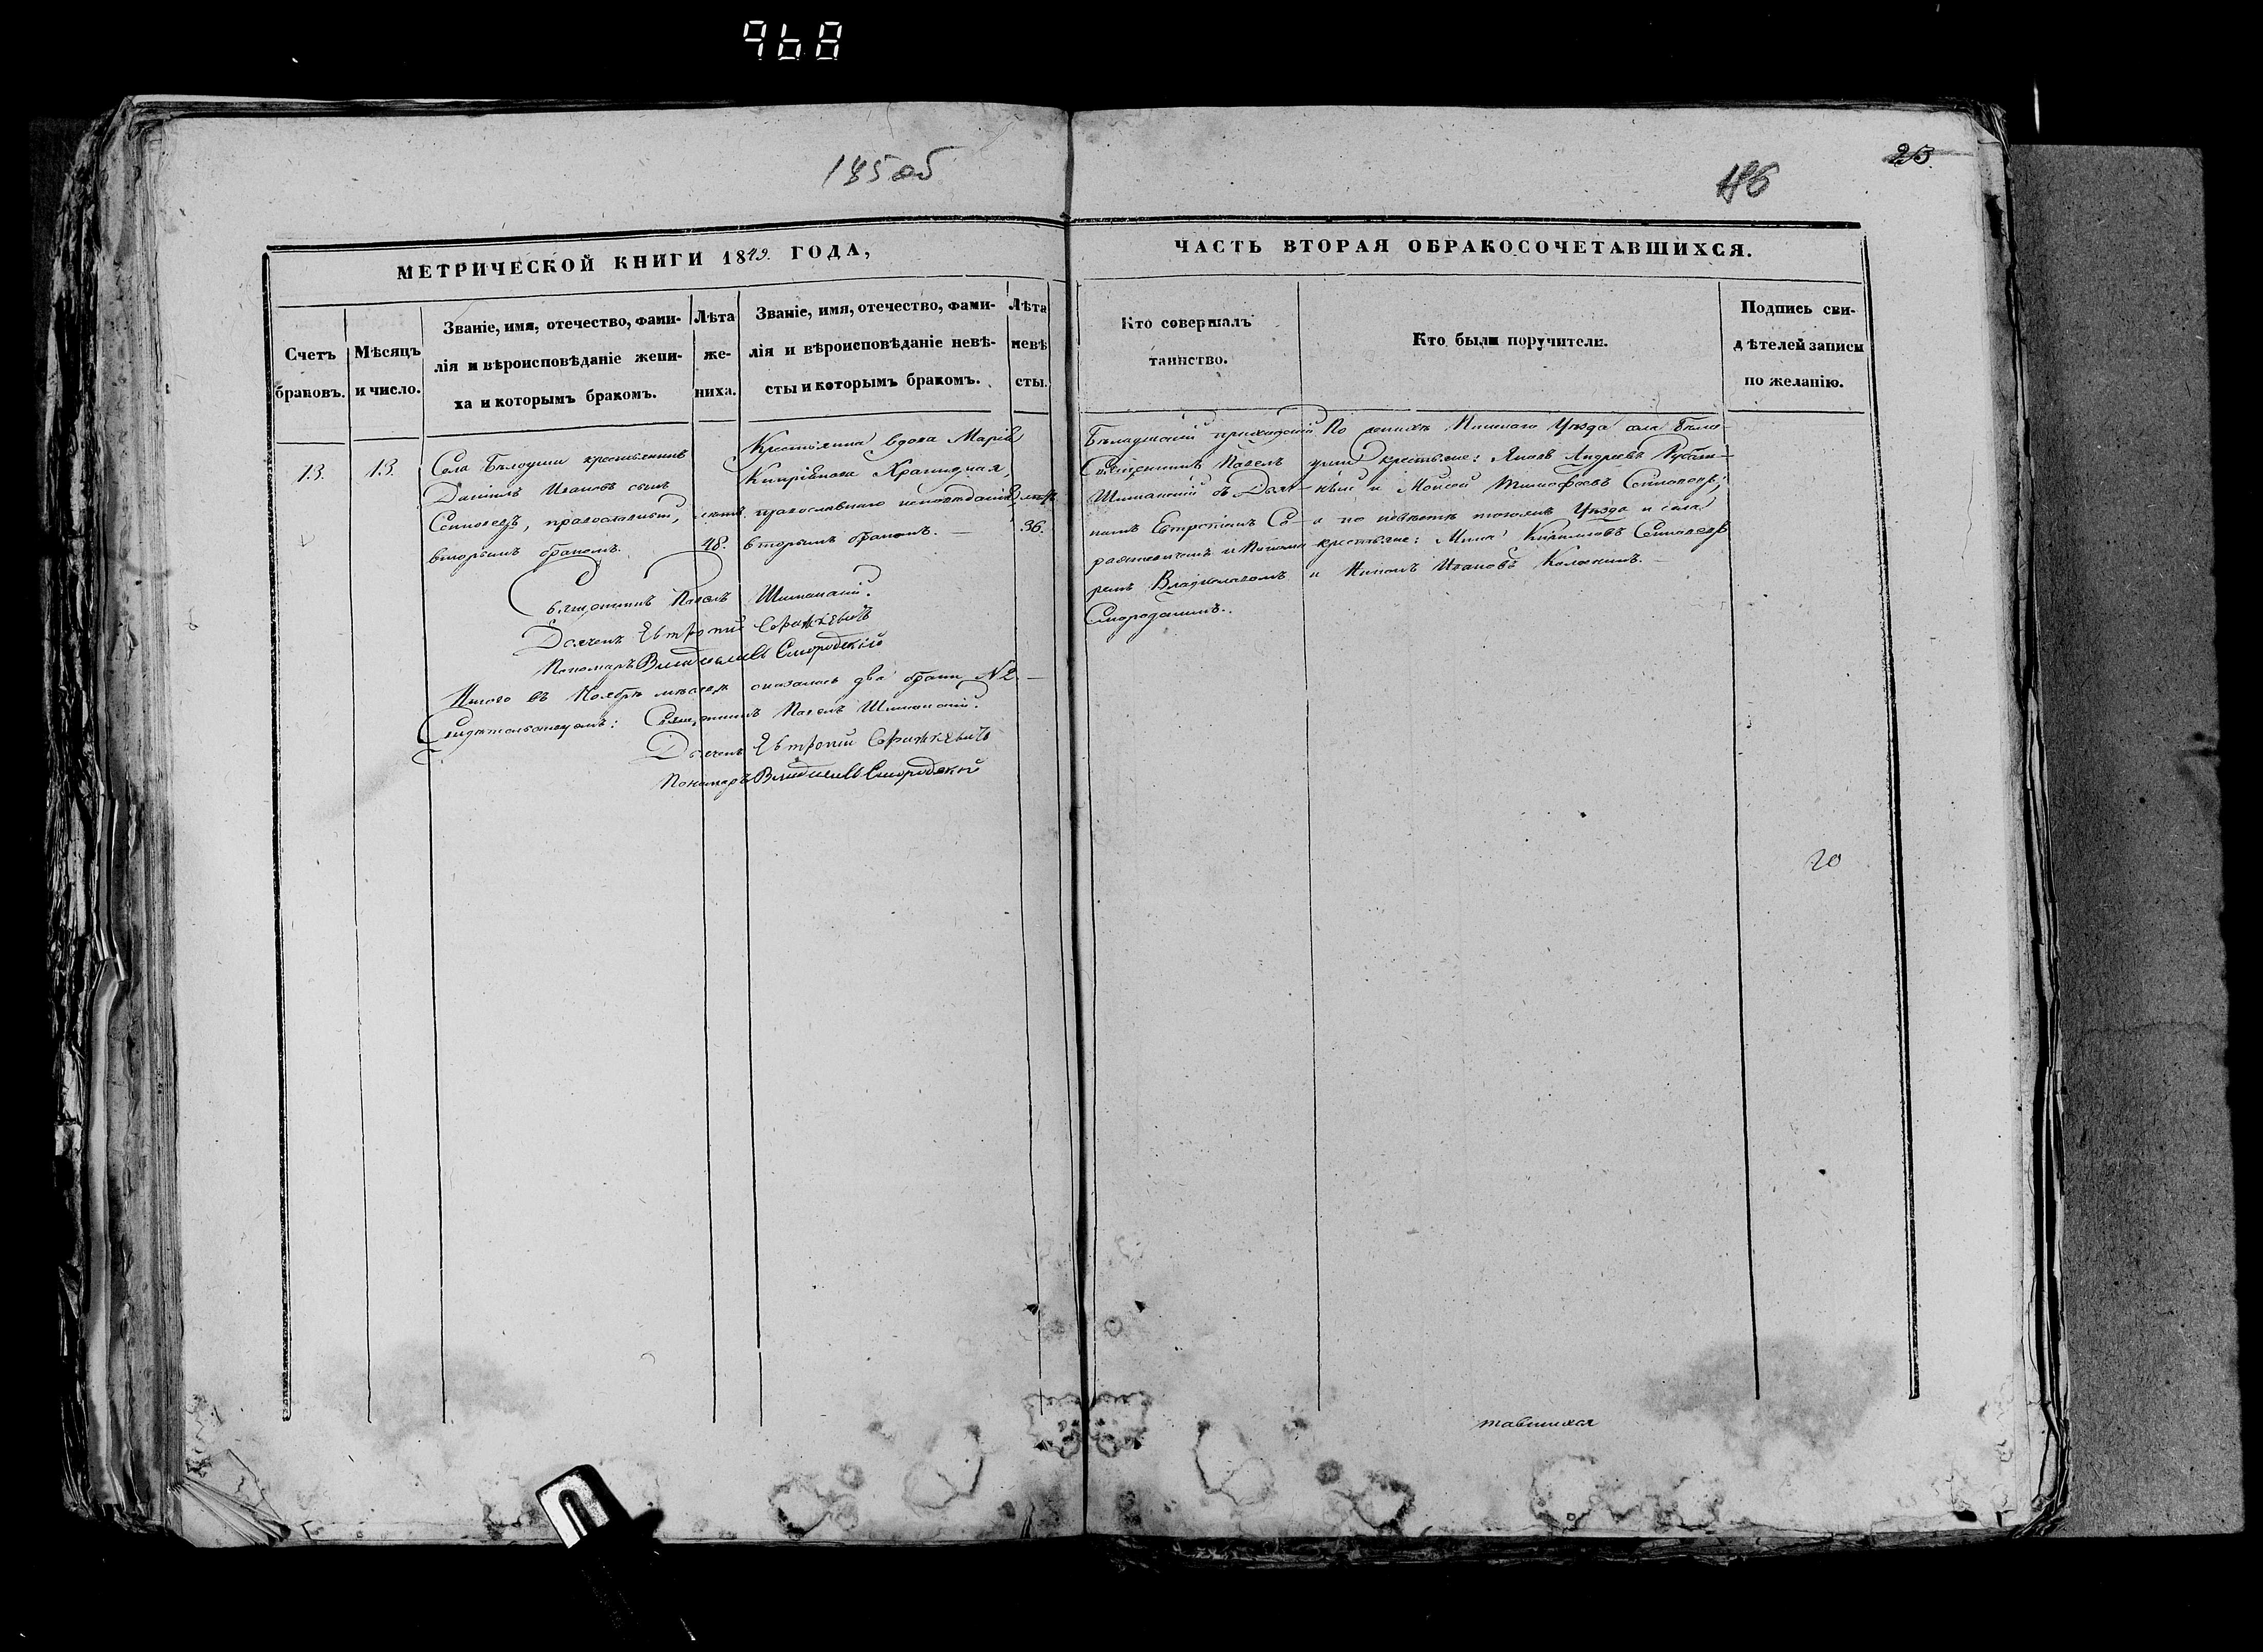 968
185 об
186
23.
МЕТРИЧЕСКОЙ КНИГИ 1849. ГОДА,
ЧАСТЬ ВТОРАЯ ОБРАКОСОЧЕТАВШИХСЯ.
Счетъ
браковъ.
Мѣсяцъ
и число.
Званіе, имя, отечество, фами-
лія и вѣроисповѣданіе жени-
ха и которымъ бракомъ.
Лѣта
же-
ниха.
Званіе, имя, отечество, фами-
лія и вѣроисповѣданіе невѣ-
сты и которымъ бракомъ.
Лѣта
невѣ
сты.
Кто совершалъ
таинство.
Кто были поручители.
Подпись сви-
дѣтелей записи
по желанію.
13.
13.
Села Бѣлоуши крестьянинъ
Даніилъ Ивановъ сынъ
православный,
вторымъ бракомъ.
лѣтъ
48.
Крестьянка вдова Марія
Кипріянова
православнаго исповѣданія,
вторымъ бракомъ. —
лѣтъ
36.
Бѣлоушскій приходскій
Священникъ Павелъ
Шиманскій съ Дьяч-
комъ Евтропіемъ Со-
ражкевичемъ и Понома
ремъ Владиславомъ
Смородскимъ.
По женихѣ Пинскаго Уѣзда села Бѣло-
уши крестьяне: Яковъ Андреевъ
и Моисей Тимофеевъ
а по невѣстѣ тогожъ Уѣзда и села
крестьяне: Мина Кириловъ
и Ивановъ
Священникъ Павелъ Шиманскій.
Дьячекъ Евтропій Соражкевичъ
Пономарь Владиславъ Смородскій
Итого въ Ноябрѣ мѣсяцѣ оказалось два брака №2. —
Свидѣтельствуемъ: Священникъ Павелъ Шиманскій.
Дьячекъ Евтропій Соражкевичъ
Пономарь Владиславъ Смородскій
20
тавшихся